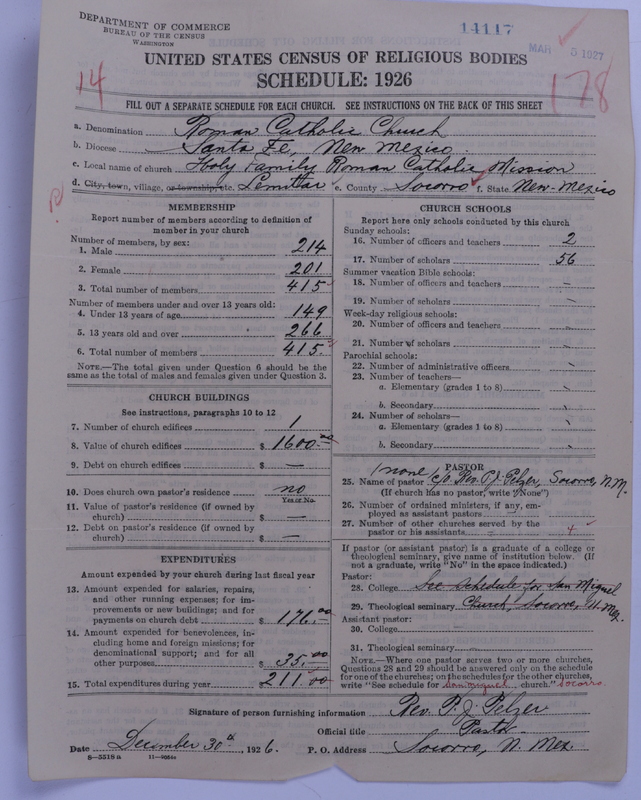 DEPARTMENT OF COMMERCE
BUREAU OF THE CENSUS
WASHINGTON
14117
MAR 5 1927
UNITED STATES CENSUS OF RELIGIOUS BODIES
SCHEDULE: 1926
14
178
FILL OUT A SEPARATE SCHEDULE FOR EACH CHURCH. SEE INSTRUCTIONS ON THE BACK OF THIS SHEET
a. Denomination Roman Catholic Church
b. Diocese Santa Fe, New Mexico.
c. Local name of church Holy Family Roman Catholic Mission
d. City, town, village, or township, etc. Lemitar e. County Socorro f. State New-Mexico
MEMBERSHIP
Report number of members according to definition of
member in your church
Number of members, by sex:
1. Male 214
2. Female 201
3. Total number of members 415
Number of members under and over 13 years old:
4. Under 13 years of age 149
5. 13 years old and over 266
6. Total number of members 415
NOTE.—The total given under Question 6 should be
same as the total of males and females given under Question 3.
CHURCH BUILDINGS
See instructions, paragraphs 10 to 12
7. Number of church edifices 1
8. Value of church edifices $ 1600.00
9. Debt on church edifices $ —
10. Does church own pastor's residence no
Yes or No
11. Value of pastor's residence (if owned by
church) $ —
12. Debt on pastor's residence (if owned by
church) $ —
EXPENDITURES
Amount expended by your church during last fiscal year
13. Amount expended for salaries, repairs,
and other running expenses; for im-
provements or new buildings; and for
payments on church debt $ 176.00
14. Amount expended for benevolences, in-
cluding home and foreign missions; for
denominational support; and for all
other purposes $ 35.00
15. Total expenditures during year $ 211.00
CHURCH SCHOOLS
Report here only schools conducted by this church
Sunday schools:
16. Number of officers and teachers 2
17. Number of scholars 56
Summer vacation Bible schools:
18. Number of officers and teachers —
19. Number of scholars
Week-day religious schools:
20. Number of officers and teachers
21. Number of scholars
Parochial schools:
22. Number of administrative officers
23. Number of teachers—
a. Elementary (grades 1 to 8)
b. Secondary
24. Number of scholars—
a. Elementary (grades 1 to 8)
b. Secondary
PASTOR
25. Name of pastor (none) c/o Rev. P. J. Pelzer, Socorro, N.M.
(If church has no pastor, write "None")
26. Number of ordained ministers, if any, em-
ployed as assistant pastors —
27. Number of other churches served by the
pastor or his assistants 4
If pastor (or assistant pastor) is a graduate of a college or
theological seminary, give name of institution below. (If
not a graduate, write "No" in the space indicated.)
Pastor:
28. College See Schedule for San Miguel
29. Theological seminary Church, Socorro, N. Mex.
Assistant pastor:
30. College
31. Theological seminary
NOTE.—Where one pastor serves two or more churches,
Questions 28 and 29 should be answered only on the schedule
for one of the churches; on the schedules for the other churches,
write "See schedule for San Miguel church." Socorro
Signature of person furnishing information Rev. P. J. Pelzer
Official title Pastor
Date December 30th, 1926. P. O. Address Socorro, N. Mex.
8—5518a 11—9050